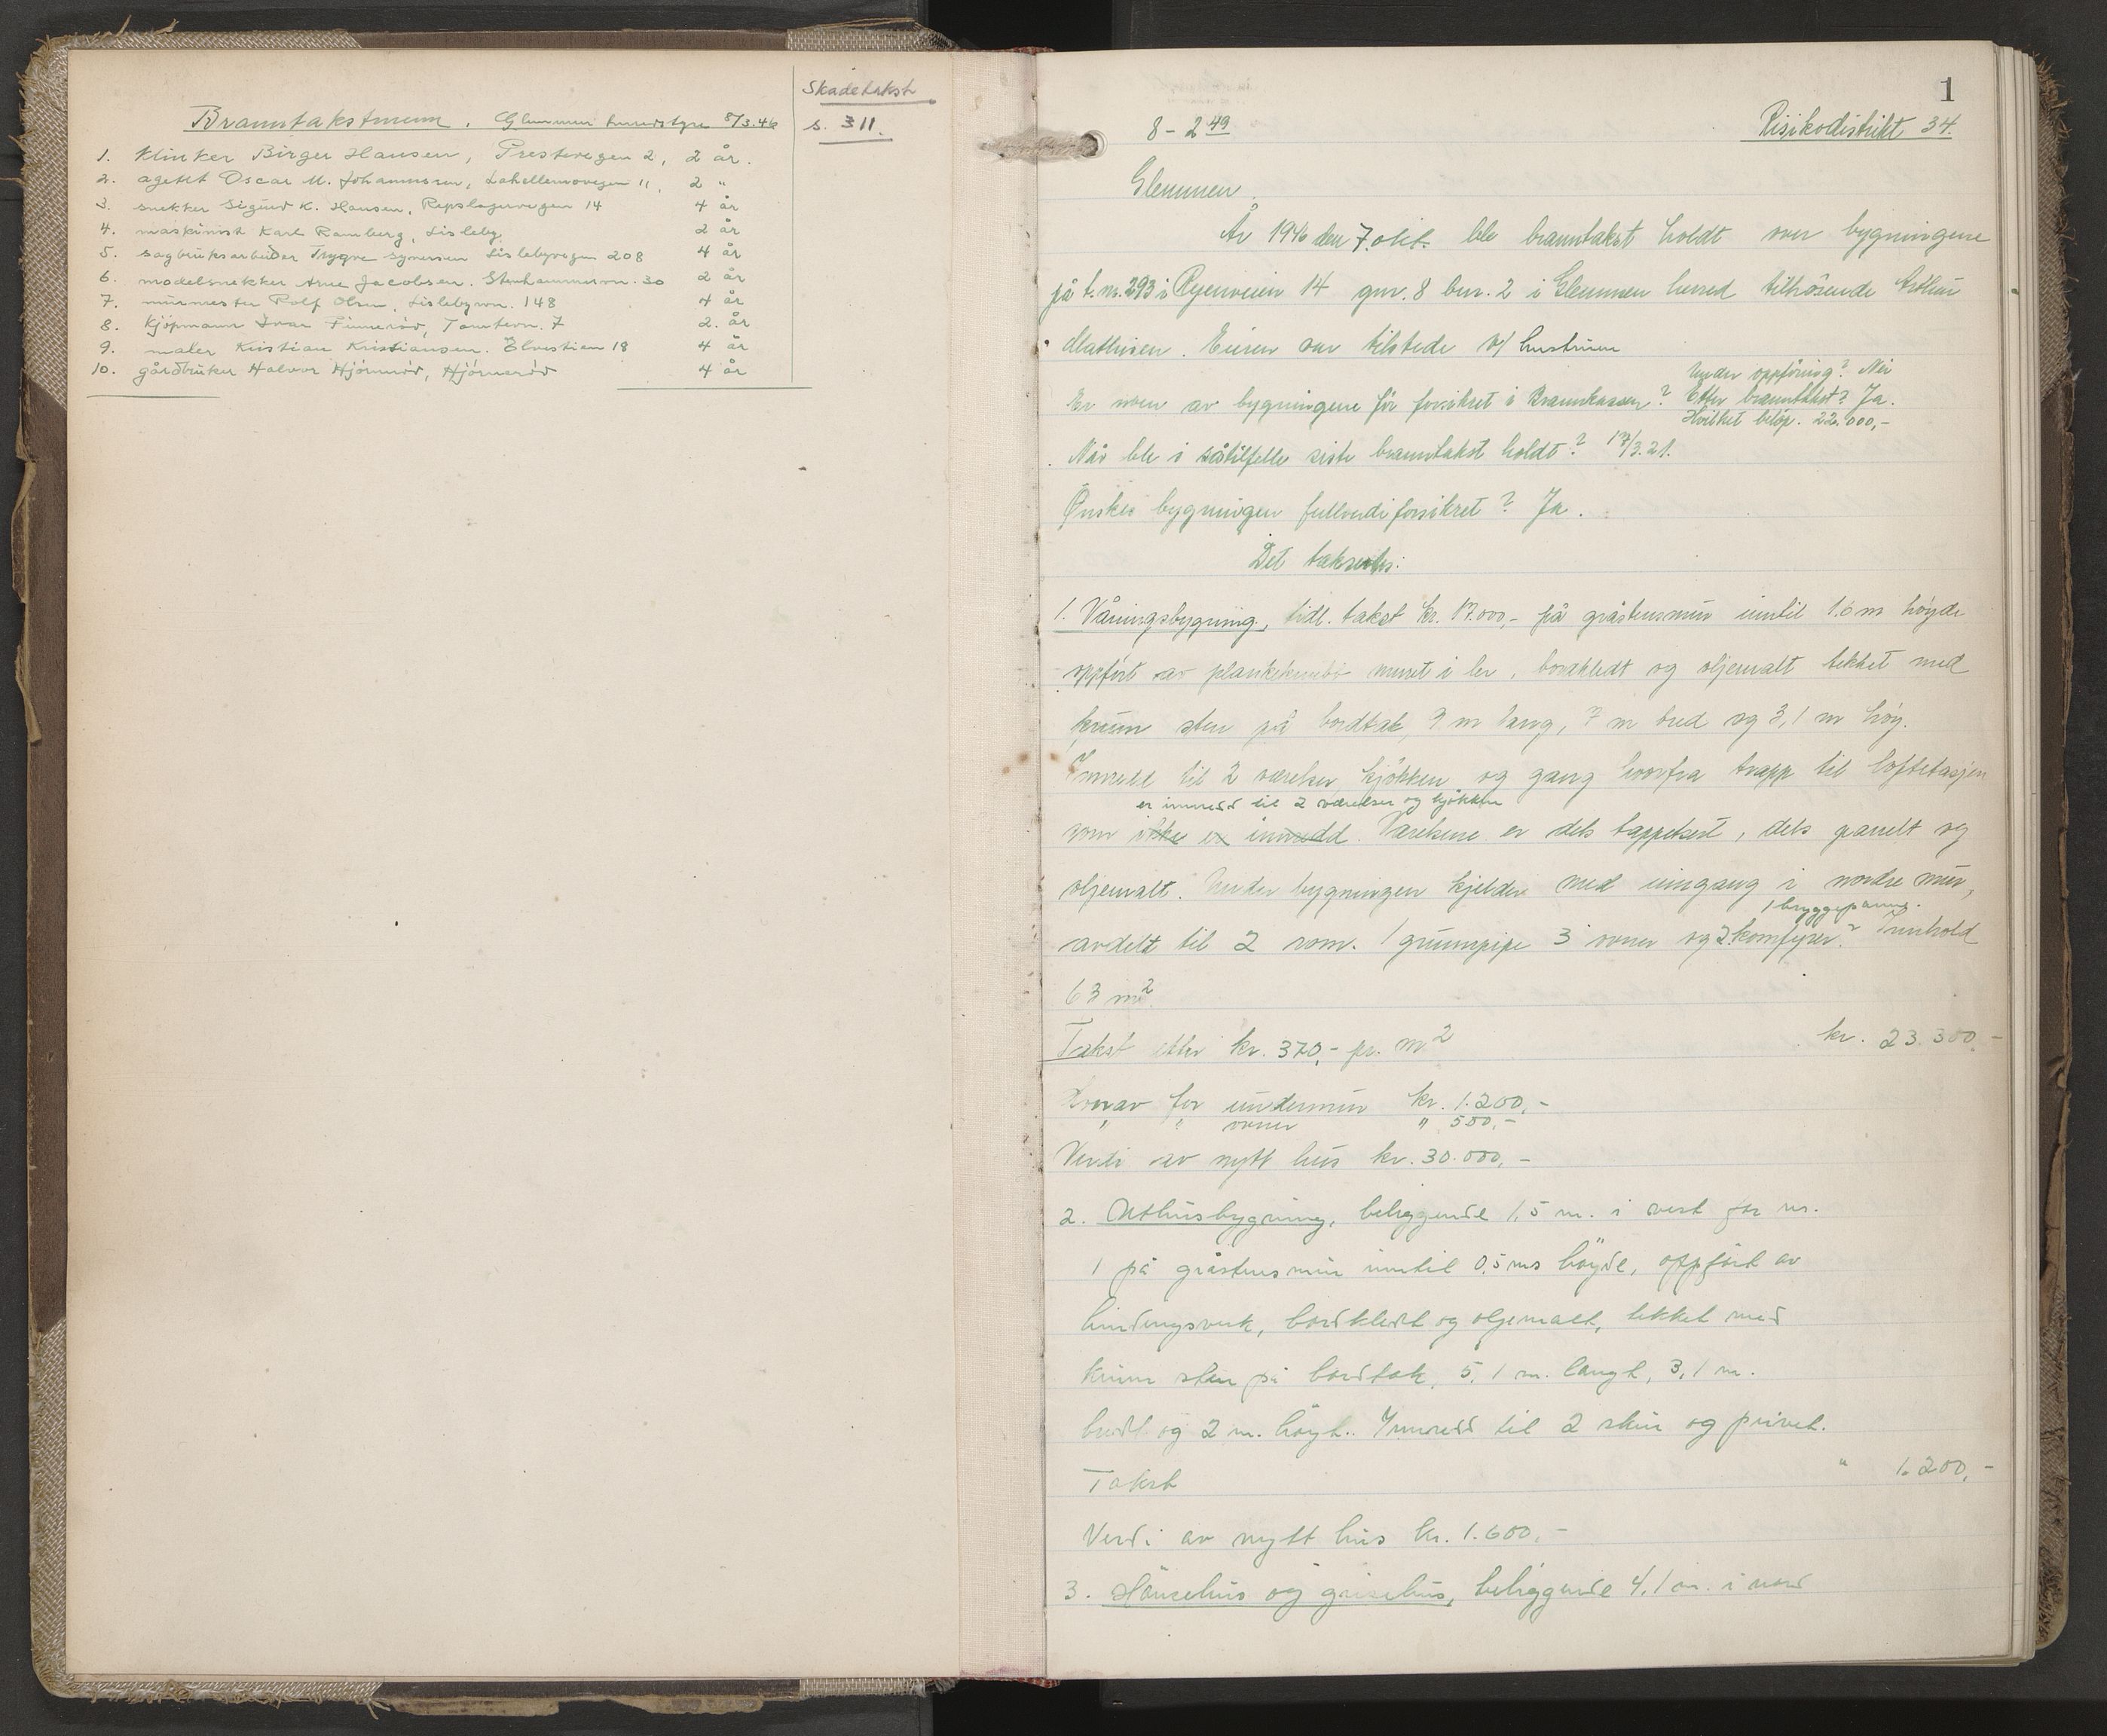 Skadetakst
s. 311.
Branntakstmenn. Glemmen herredstyre 8/3.46
1. Klinker Birger Hansen, Prestevegen 2, 2 år.
2. agent Oscar M. Johannssen, Lahellemovegen 11, 2 "
3. snekker Sigurd K. Hansen, Repslagervegen 14 4 år
4. maskinist Karl Ramberg, Lisleby 2 år
5. sagbruksarbeider Trygve Syversen Lislebyvegen 208 4 år
6. modelsnekker Arne Jacobsen. Stenhammervn. 30 2 år
7. murmester Rolf Olsen, Lislebyvn. 148 4 år
8. Kjøpmann Ivar Finnerød, Tomtevn. 7 2. år
9. maler Kristian Kristiansen. Elvestien 18 4 år
10. gårdbruker Halvor Hjørnerød, Hjørnerød 4 år
1
8-2 49
Risikodistrikt 34.
Glemmen.
År 1946 den 7. okt. ble branntakst holdt over bygningene
på b.nr. 293 i 14 gnr. 8 bnr. 2 i Glemmen herred tilhørende Arthur
Mathisen. Eieren var tilstede v/ hustruen
Under oppføring? Nei
Er noen av bygningene før forsikret i Brannkassen? Etter branntakst? Ja.
Hvilket beløp. 22.000,-
Når ble i såtilfelle siste branntakst holdt? 17/3.21.
Ønskes bygningen fullverdiforsikret? Ja.
Det takseres:
1. Våningsbygning, tidl. takst kr. 17.000,- på gråstensmur inntil 1.6 m høyde
oppført av plankekubb muret i ler, bordkledt og oljemalt tekket med
krum sten på bordtak, 9 m lang, 7 m bred og 3,1 m høy.
Innredd til 2 værelser, kjøkken og gang hvorfra trapp til loftetasjen
er innredd til 2 værelser og kjøkken
som ikke er innredd. Værelsene er dels tappetsert, dels panelt og
oljemalt. Under bygningen kjelder med inngang i nordre mur,
1 bryggepanne.
avdelt til 2 rom. 1 grunnpipe 3 ovner og 2 komfyrer. Innhold
63 m².
Takst etter kr. 370,- pr. m² kr. 23.300,-
Hvorav for undermur kr. 1.200,-
" " ovner " 500,-
Verdi av nytt hus kr. 30.000,-
2. Uthusbygning, beliggende 1,5 m. i vest for nr.
1 på gråstensmur inntil 0,5 ms høyde, oppført av
bindingsverk, bordkledt og oljemalt, tekket med
krum sten på bordtak, 5,1 m. langt, 3,1 m.
bredt og 2 m. høyt. Innredd til 2 skur og privet.
Takst " 1.200,-
Verdi av nytt hus kr. 1.600,-
3. Hönsehus og grisehus, beliggende 4,1 m. i nord